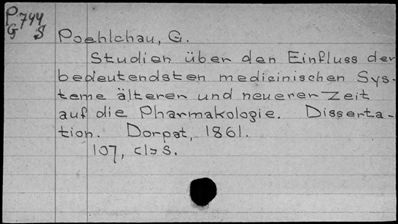 P744
G S
Poehlchau, G.
Studien über den Einfluss der
bedeutendsten medicinischen Sys-
teme älteren und neuerer Zeit
auf die Pharmakologie. Disserta-
tion. Dorpat, 1861.
107, clɔs.